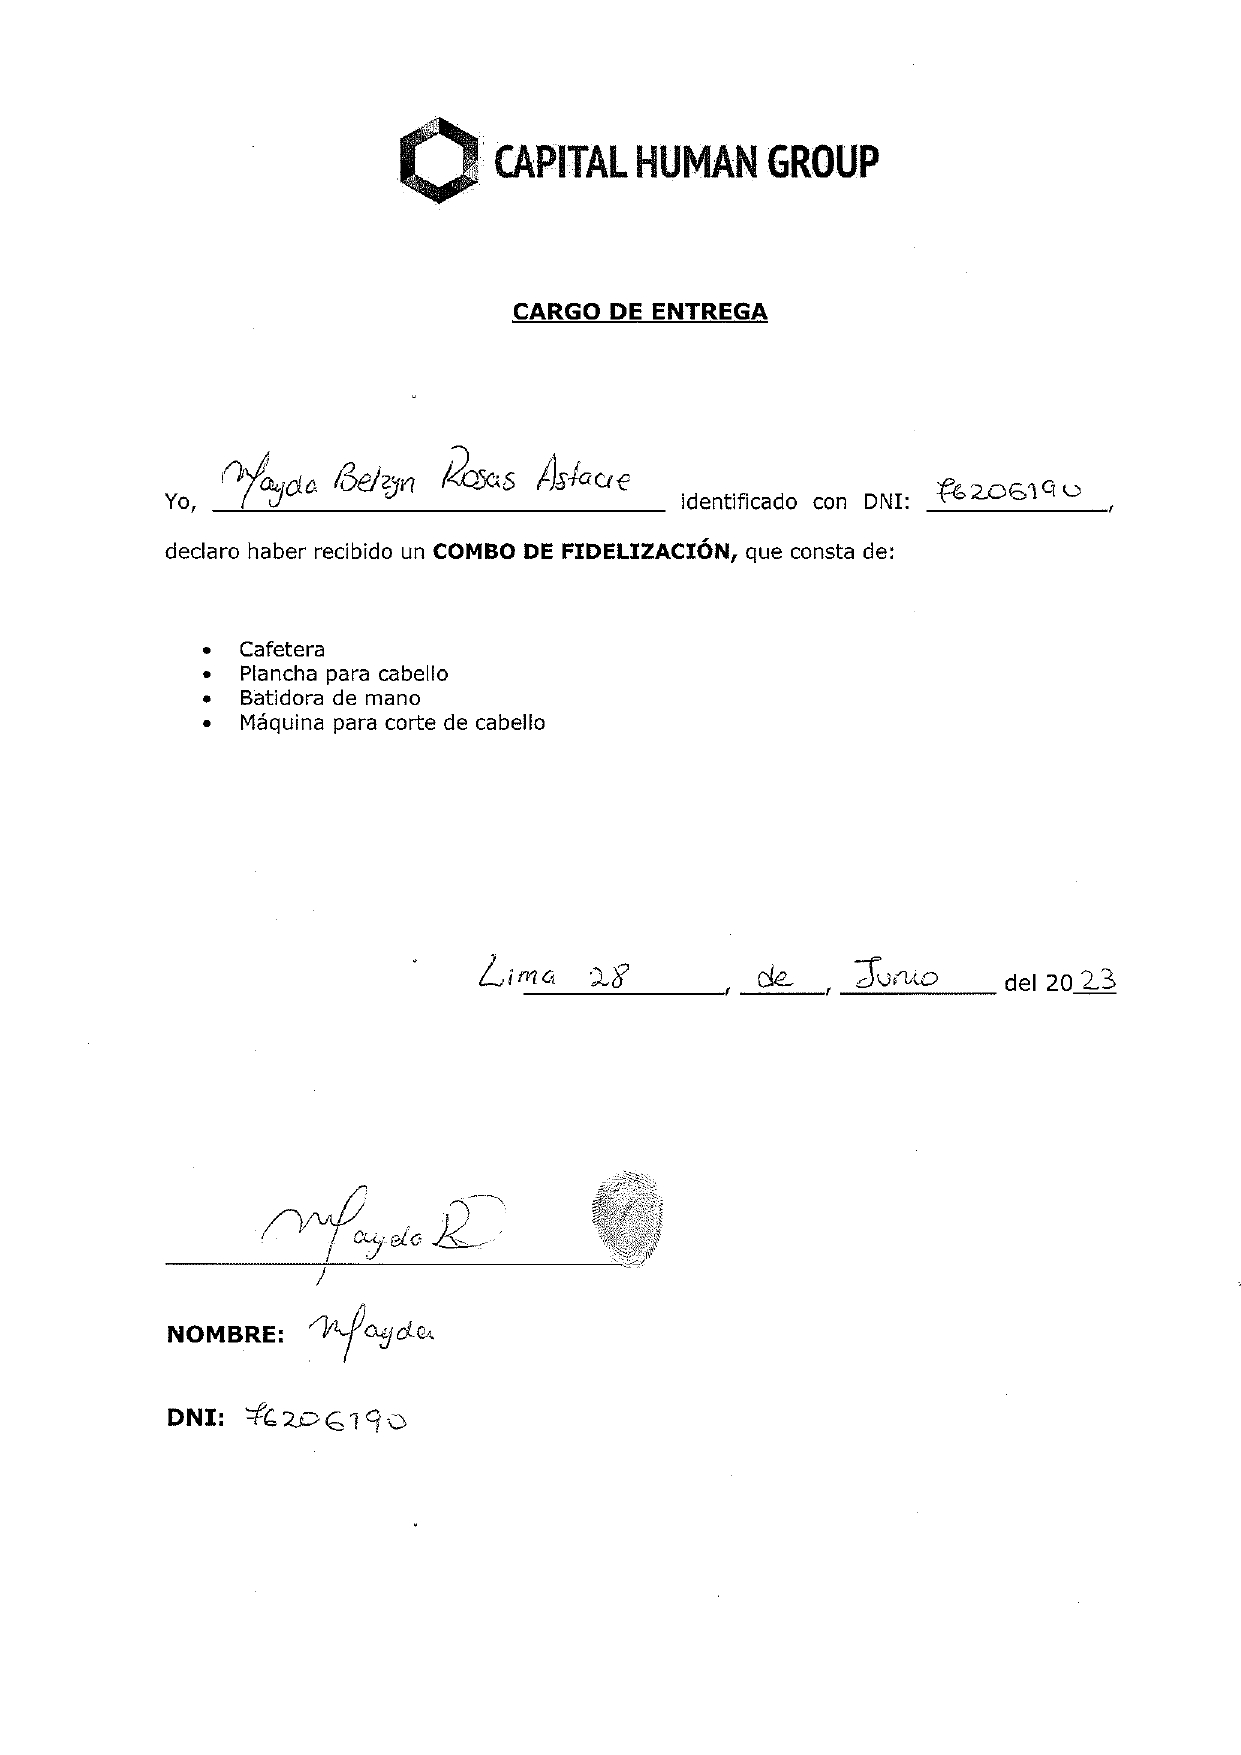 CAPITAL HUMAN GROUP
CARGO DE ENTREGA
Yo, Mayda Belzyn Rosas Astacie identificado con DNI: 76206190,
declaro haber recibido un COMBO DE FIDELIZACIÓN, que consta de:
• Cafetera
• Plancha para cabello
• Batidora de mano
• Máquina para corte de cabello
Lima 28, de, Junio del 2023
Mayda R
NOMBRE: Mayda
DNI: 76206190